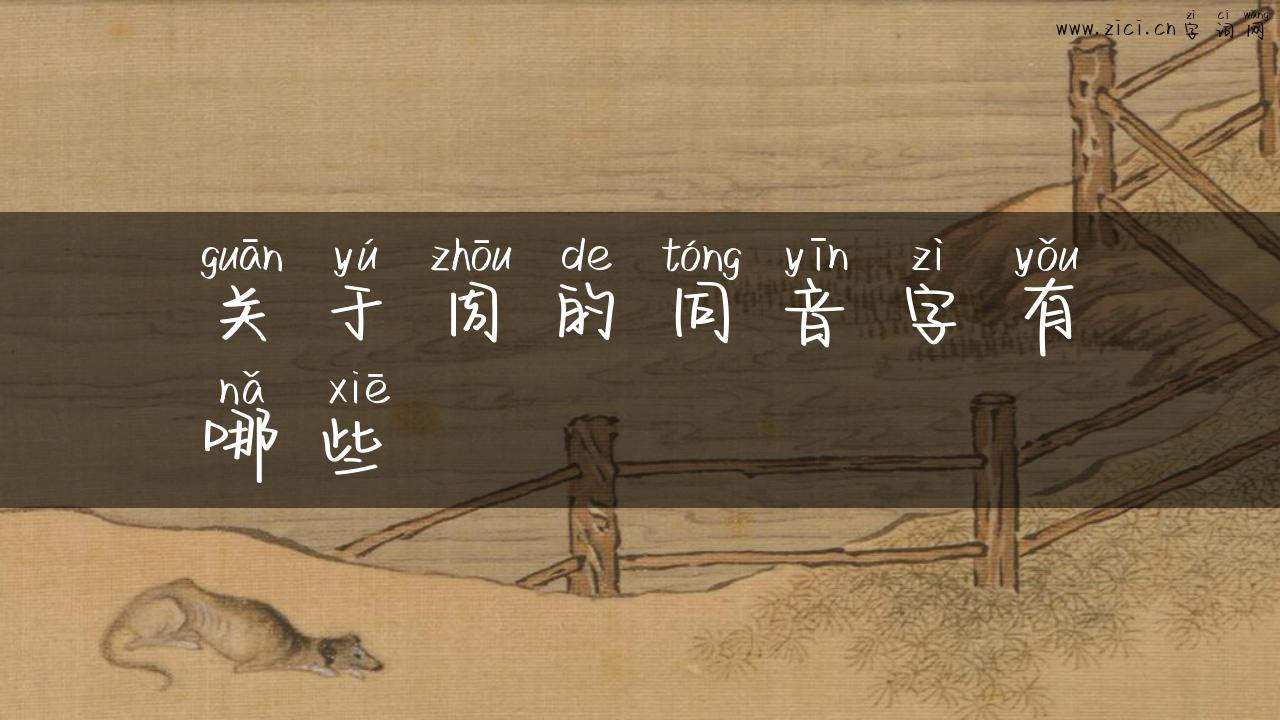 zì cí wǎng
www.zici.cn 字词网
guān yú zhōu de tóng yīn zì yǒu
关于周的同音字有
nǎ xiē
哪些